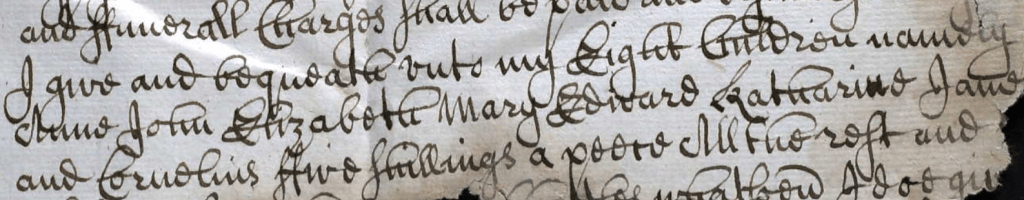 and ffunerall Charges shall be paid and
I give and bequeath unto my Eight Children namely
Anne John Elizabeth Mary Edward Katharine Jane
and Cornelius ffive shillings a peece All the rest and
I doe give